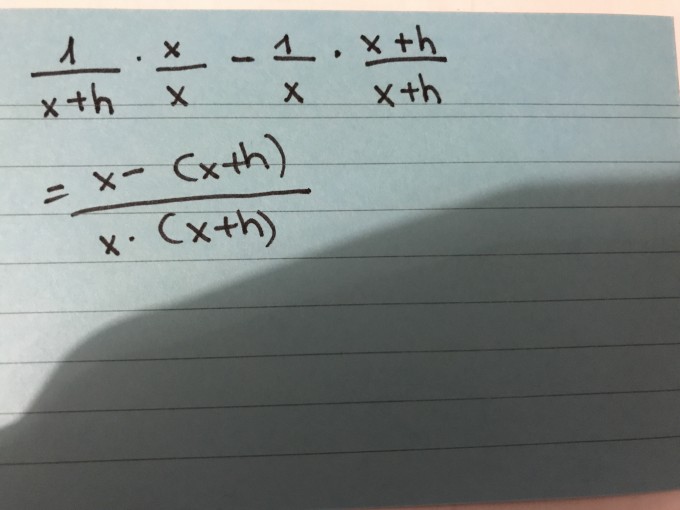 1/(x+h) · x/x - 1/x · (x+h)/(x+h)
= (x - (x+h))/(x · (x+h))